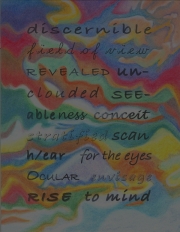 discernible
field of view
REVEALED un-
clouded SEE-
ableness conceit
stratified scan
h/ear for the eyes
OCULAR envisage
RISE to mind